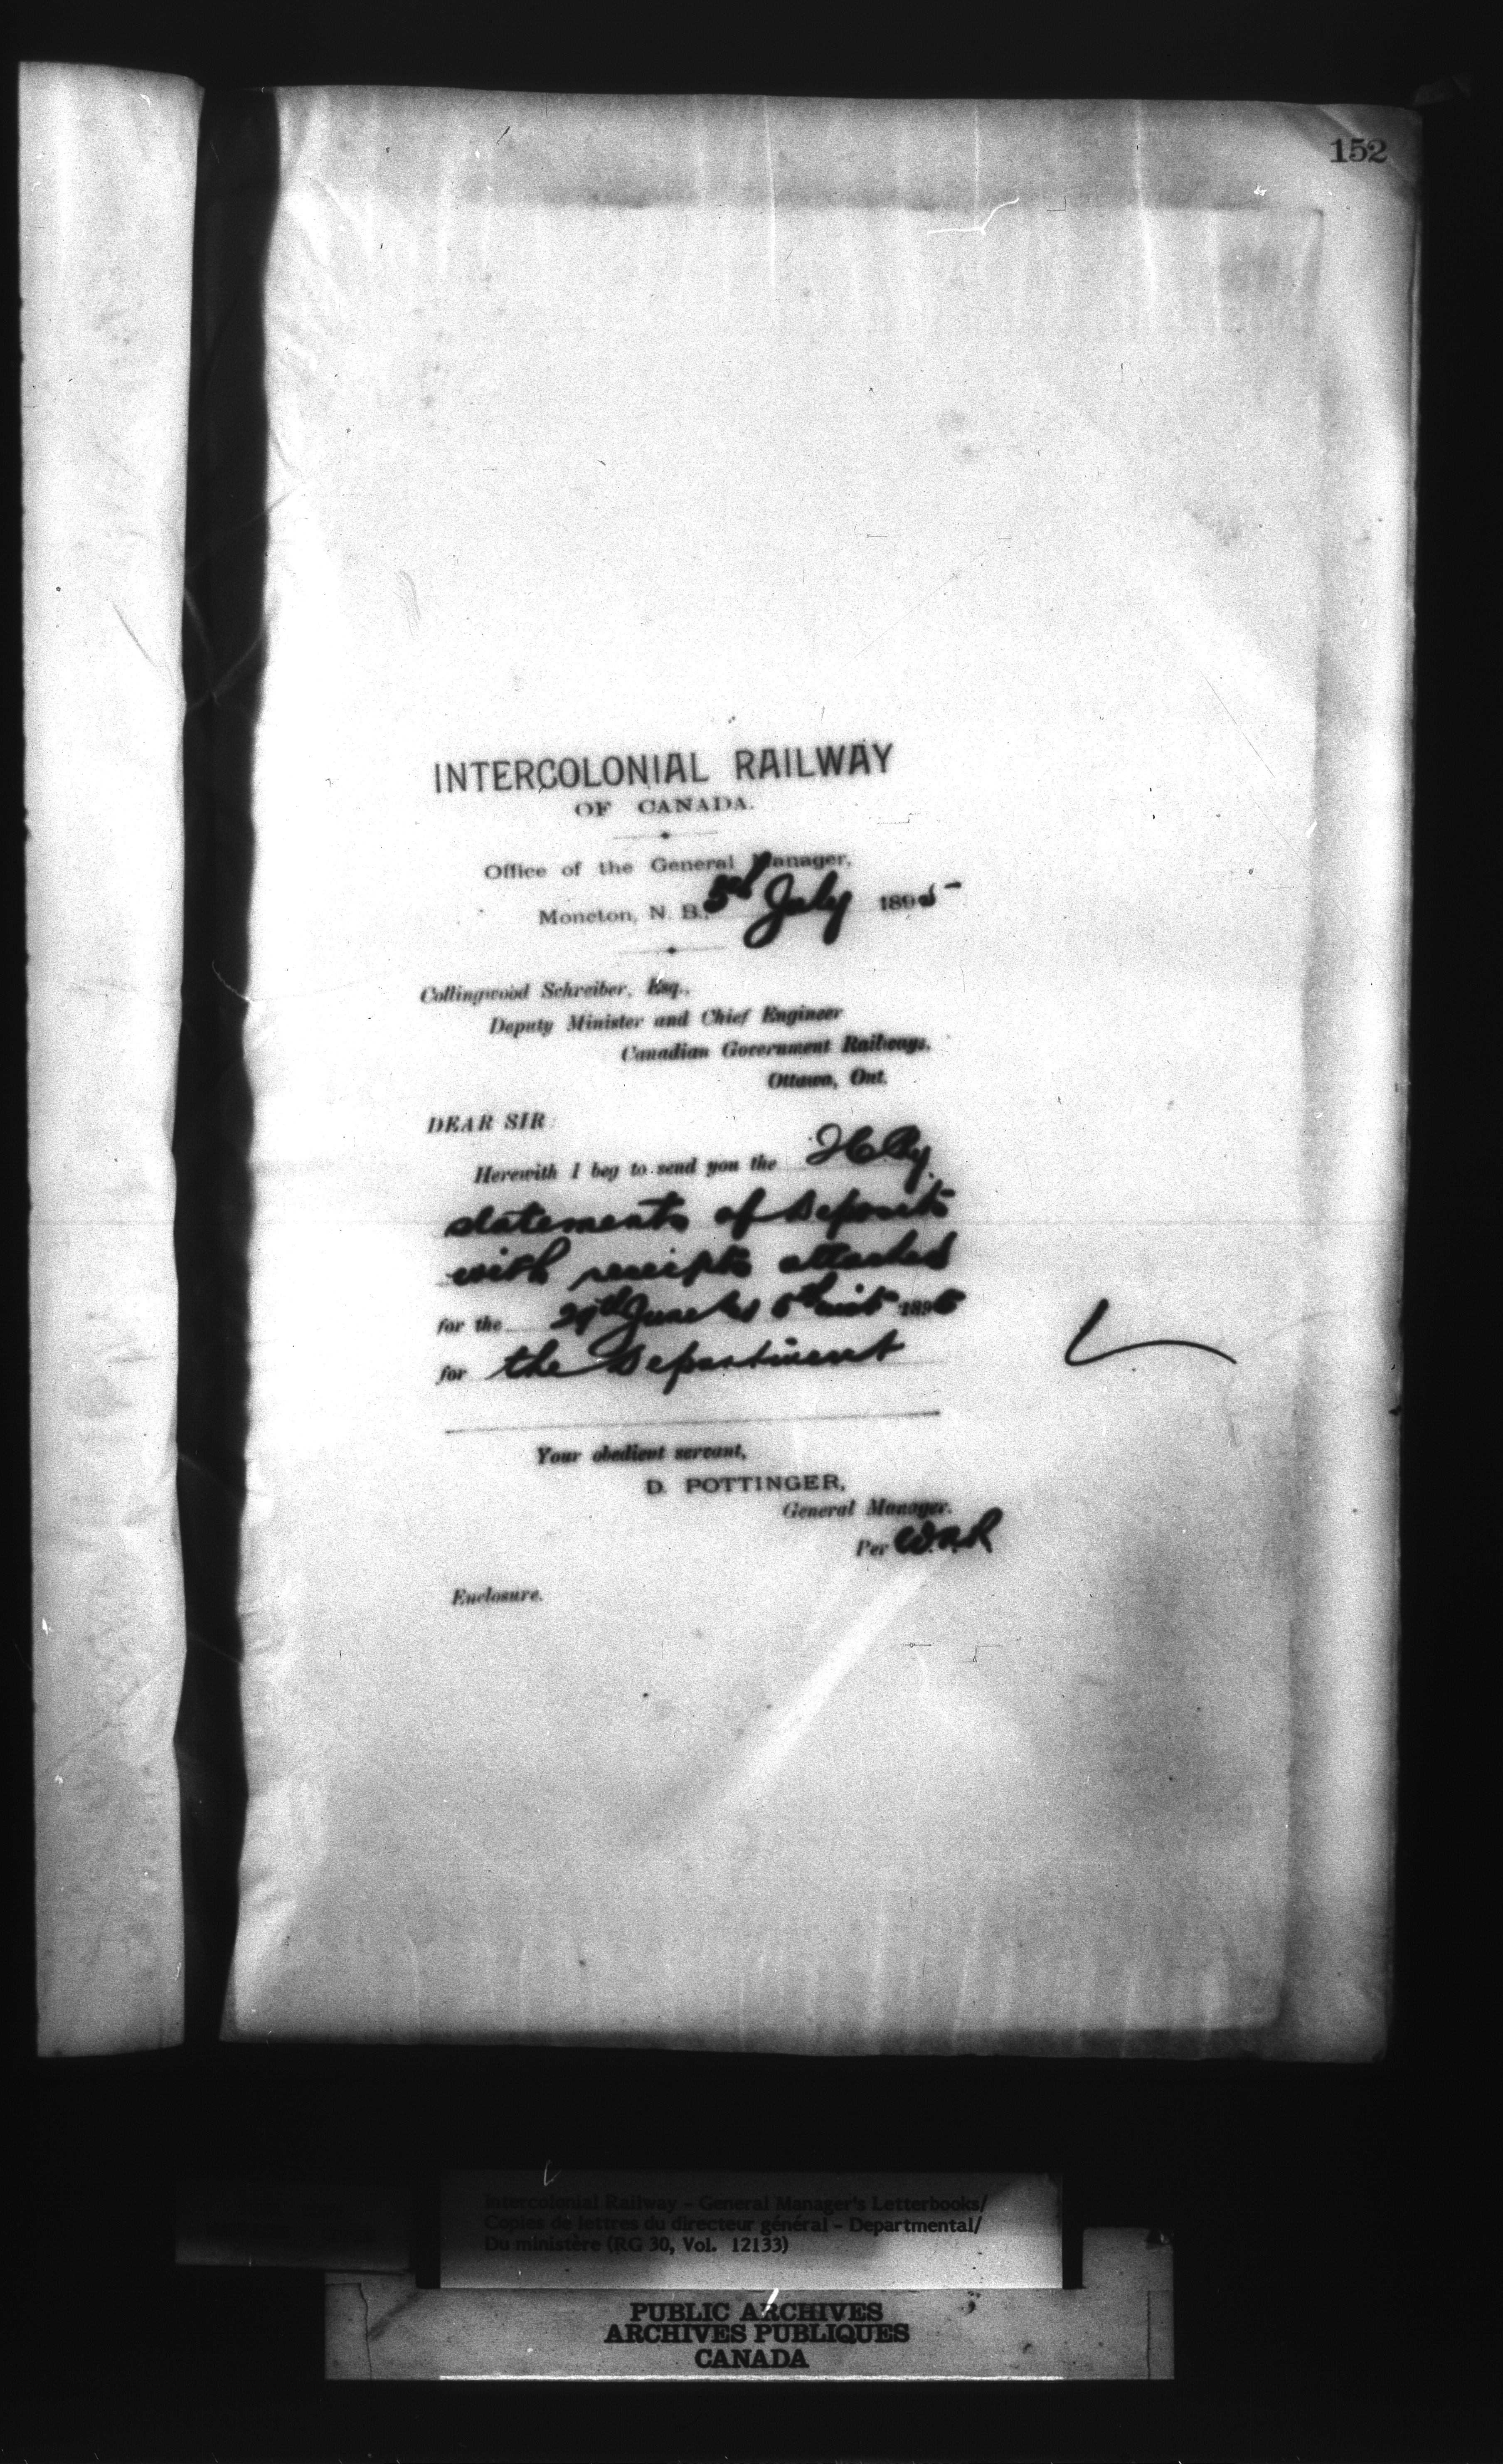 152
INTERCOLONIAL RAILWAY
OF CANADA.
Office of the General Manager,
Moncton, N. B., July 1895
Collingwood Schreiber, Esq.,
Deputy Minister and Chief Engineer
Canadian Government Railways,
Ottawa, Ont.
DEAR SIR
Herewith I beg to send you the
statements of Deposits
with receipts attached
for the 29th June 5th inst 1895
for the Department
Your obedient servant,
D. POTTINGER,
General Manager.
Per
Enclosure.
Intercolonial Railway - General Manager's Letterbooks/
Copies de lettres du directeur général - Departmental/
Du ministère (RG 30, Vol. 12133)
PUBLIC ARCHIVES
ARCHIVES PUBLIQUES
CANADA